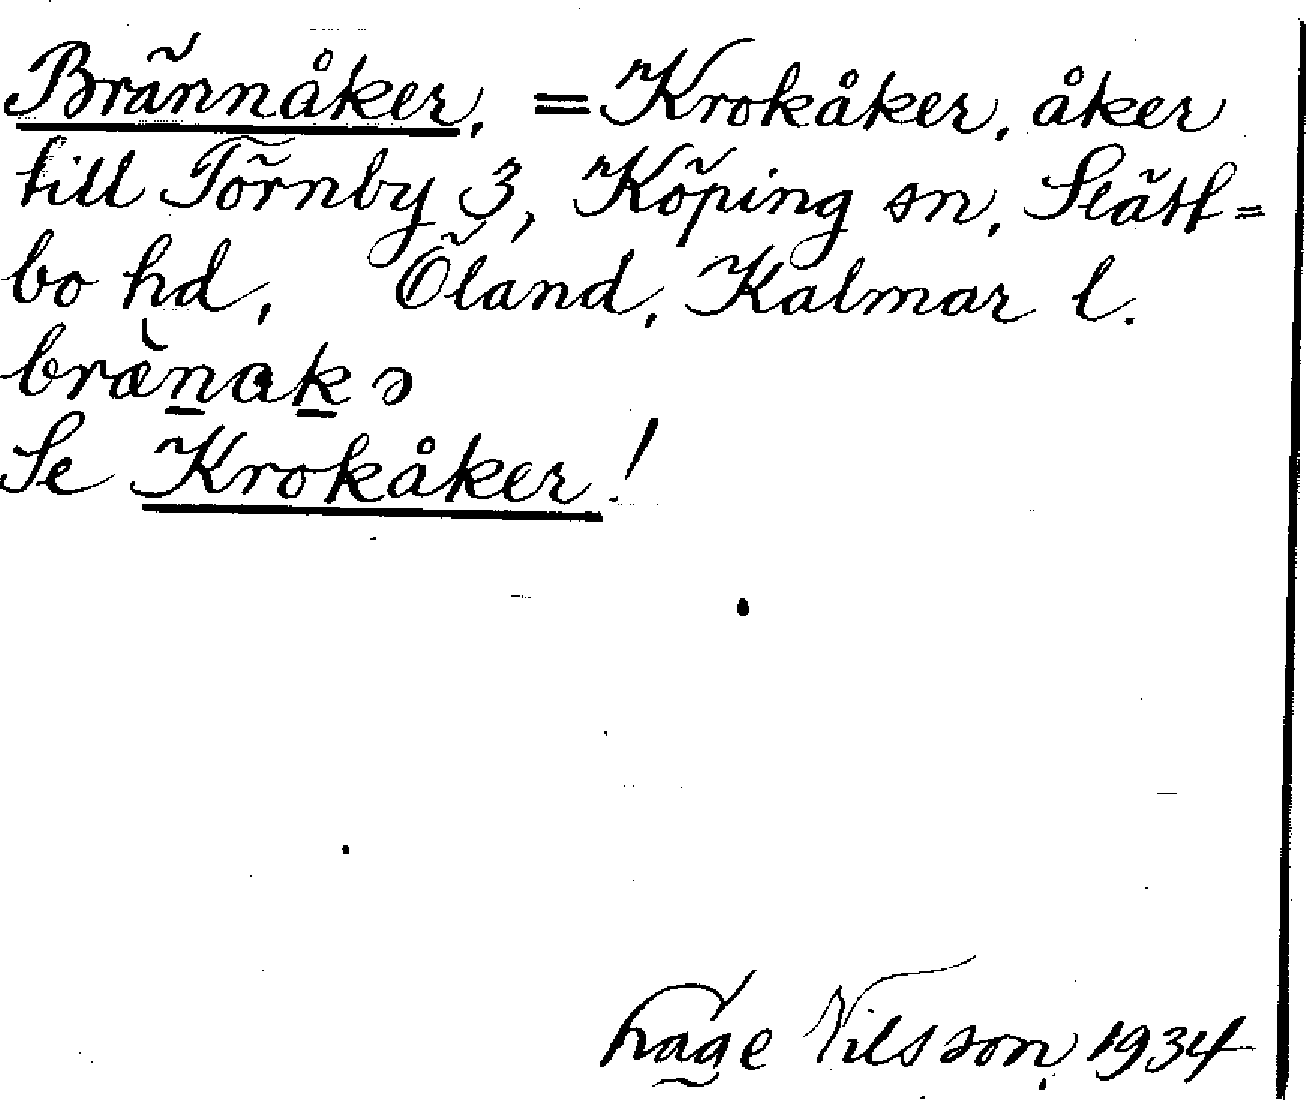 Brännåker, = Krokåker, åker
till Törnby 3, Köping sn, Slätt=
bo hd, Öland, Kalmar l.
Se Krokåker!
Nilsson, 1934